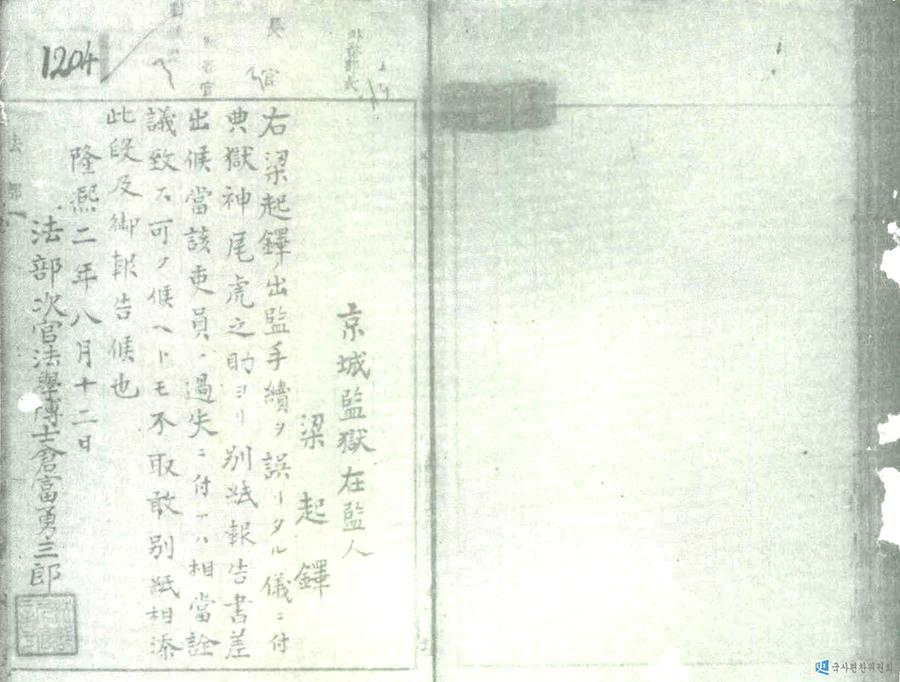 1204
京城監獄在監人
梁起鐸
右梁起鐸ノ出監手續ヲ誤リタル儀ニ付
典獄神尾虎之助ヨリ別紙報告書差
出候當該吏員ノ過失ニ付テハ相當詮
議致ス可ク候ヘトモ不取敢別紙相添
此段及御報告候也
隆熙二年八月十二日
法部次官法學博士倉富勇三郎
法部
국사편찬위원회